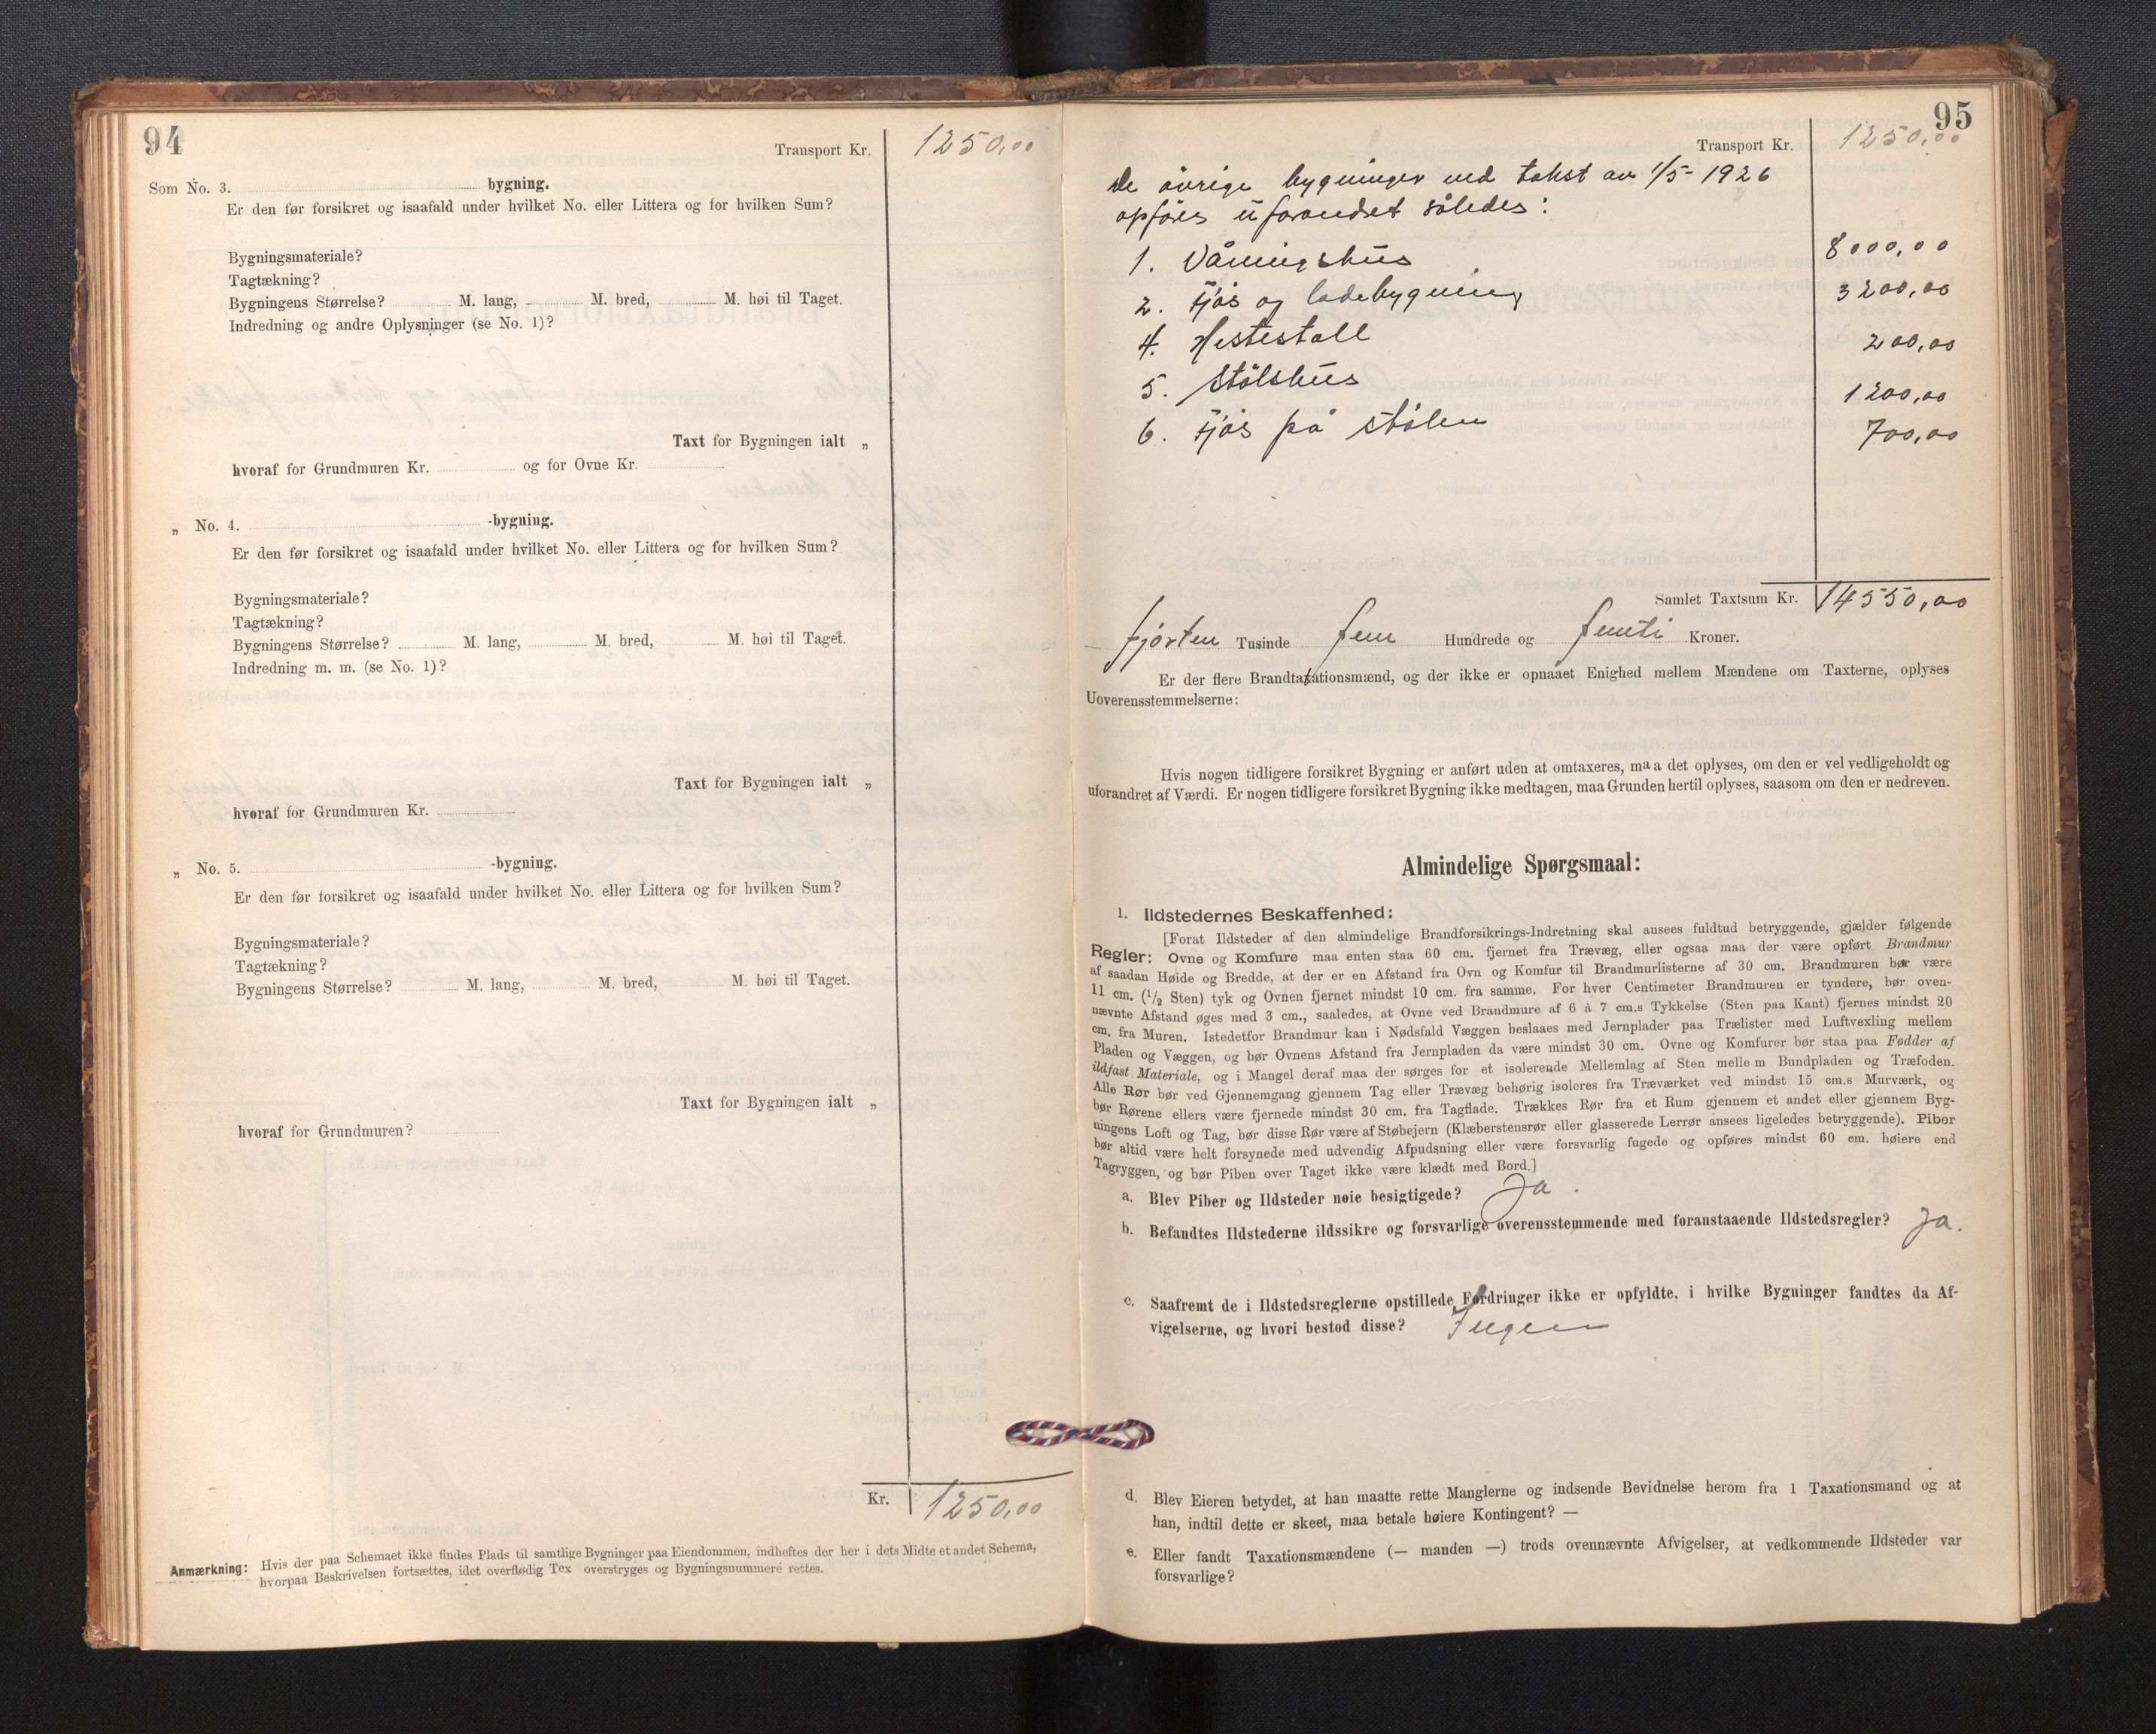 94
Transport Kr. 1250,00
Som No. 3. bygning.
Er den før forsikret og isaafald under hvilket No. eller Littera og for hvilken Sum?
Bygningsmateriale?
Tagtækning?
Bygningens Størrelse? M. lang, M. bred, M. høi til Taget.
Indredning og andre Oplysninger (se No. 1)?
Taxt for Bygningen ialt „
hvoraf for Grundmuren Kr. og for Ovne Kr.
„ No. 4. -bygning.
Er den før forsikret og isaafald under hvilket No. eller Littera og for hvilken Sum?
Bygningsmateriale?
Tagtækning?
Bygningens Størrelse? M. lang, M. bred, M. høi til Taget.
Indredning m. m. (se No. 1)?
Taxt for Bygningen ialt „
hvoraf for Grundmuren Kr.
„ No. 5. -bygning.
Er den før forsikret og isaafald under hvilket No. eller Littera og for hvilken Sum?
Bygningsmateriale?
Tagtækning?
Bygningens Størrelse? M. lang, M. bred, M. høi til Taget.
Taxt for Bygningen ialt „
hvoraf for Grundmuren?
Kr. 1250,00
Anmærkning: Hvis der paa Schemaet ikke findes Plads til samtlige Bygninger paa Eiendommen, indheftes der her i dets Midte et andet Schema,
hvorpaa Beskrivelsen fortsættes, idet overflødig Tex overstryges og Bygningsnummere rettes.
95
Transport Kr. 1250,00
De övrige bygninger ved takst av 1/5-1926
opföres uforandret således:
1. Våningshus 8000,00
2. Fjös og ladebygning 3200,00
4. Hestestall 200,00
5. Stölshus 1200,00
6. Fjös på stölen 700,00
Samlet Taxtsum Kr. 14550,00
fjorten Tusinde fem Hundrede og femti Kroner.
Er der flere Brandtaxationsmænd, og der ikke er opnaaet Enighed mellem Mændene om Taxterne, oplyses
Uoverensstemmelserne:
Hvis nogen tidligere forsikret Bygning er anført uden at omtaxeres, maa det oplyses, om den er vel vedligeholdt og
uforandret af Værdi. Er nogen tidligere forsikret Bygning ikke medtagen, maa Grunden hertil oplyses, saasom om den er nedreven.
Almindelige Spørgsmaal:
1. Ildstedernes Beskaffenhed:
[Forat Ildsteder af den almindelige Brandforsikrings-Indretning skal ansees fuldtud betryggende, gjælder følgende
Regler: Ovne og Komfure maa enten staa 60 cm. fjernet fra Trævæg, eller ogsaa maa der være opført Brandmur
af saadan Høide og Bredde, at der er en Afstand fra Ovn og Komfur til Brandmurlisterne af 30 cm. Brandmuren bør være
11 cm. (1/2 Sten) tyk og Ovnen fjernet mindst 10 cm. fra samme. For hver Centimeter Brandmuren er tyndere, bør oven-
nævnte Afstand øges med 3 cm., saaledes, at Ovne ved Brandmure af 6 à 7 cm.s Tykkelse (Sten paa Kant) fjernes mindst 20
cm. fra Muren. Istedetfor Brandmur kan i Nødsfald Væggen beslaaes med Jernplader paa Trælister med Luftvexling mellem
Pladen og Væggen, og bør Ovnens Afstand fra Jernpladen da være mindst 30 cm. Ovne og Komfurer bør staa paa Fødder af
ildfast Materiale, og i Mangel deraf maa der sørges for et isolerende Mellemlag af Sten mellem Bundpladen og Træfoden.
Alle Rør bør ved Gjennemgang gjennem Tag eller Trævæg behørig isoleres fra Træværket ved mindst 15 cm.s Murværk, og
bør Rørene ellers være fjernede mindst 30 cm. fra Tagflade. Trækkes Rør fra et Rum gjennem et andet eller gjennem Byg-
ningens Loft og Tag, bør disse Rør være af Støbejern (Klæberstensrør eller glasserede Lerrør ansees ligeledes betryggende). Piber
bør altid være helt forsynede med udvendig Afpudsning eller være forsvarlig fugede og opføres mindst 60 cm. høiere end
Tagryggen, og bør Piben over Taget ikke være klædt med Bord.]
a. Blev Piber og Ildsteder nøie besigtigede? Ja.
b. Befandtes Ildstederne ildssikre og forsvarlige overensstemmende med foranstaaende Ildstedsregler? Ja.
c. Saafremt de i Ildstedsreglerne opstillede Fordringer ikke er opfyldte, i hvilke Bygninger fandtes da Af-
vigelserne, og hvori bestod disse? Ingen
d. Blev Eieren betydet, at han maatte rette Manglerne og indsende Bevidnelse herom fra 1 Taxationsmand og at
han, indtil dette er skeet, maa betale høiere Kontingent? —
e. Eller fandt Taxationsmændene (— manden —) trods ovennævnte Afvigelser, at vedkommende Ildsteder var
forsvarlige?